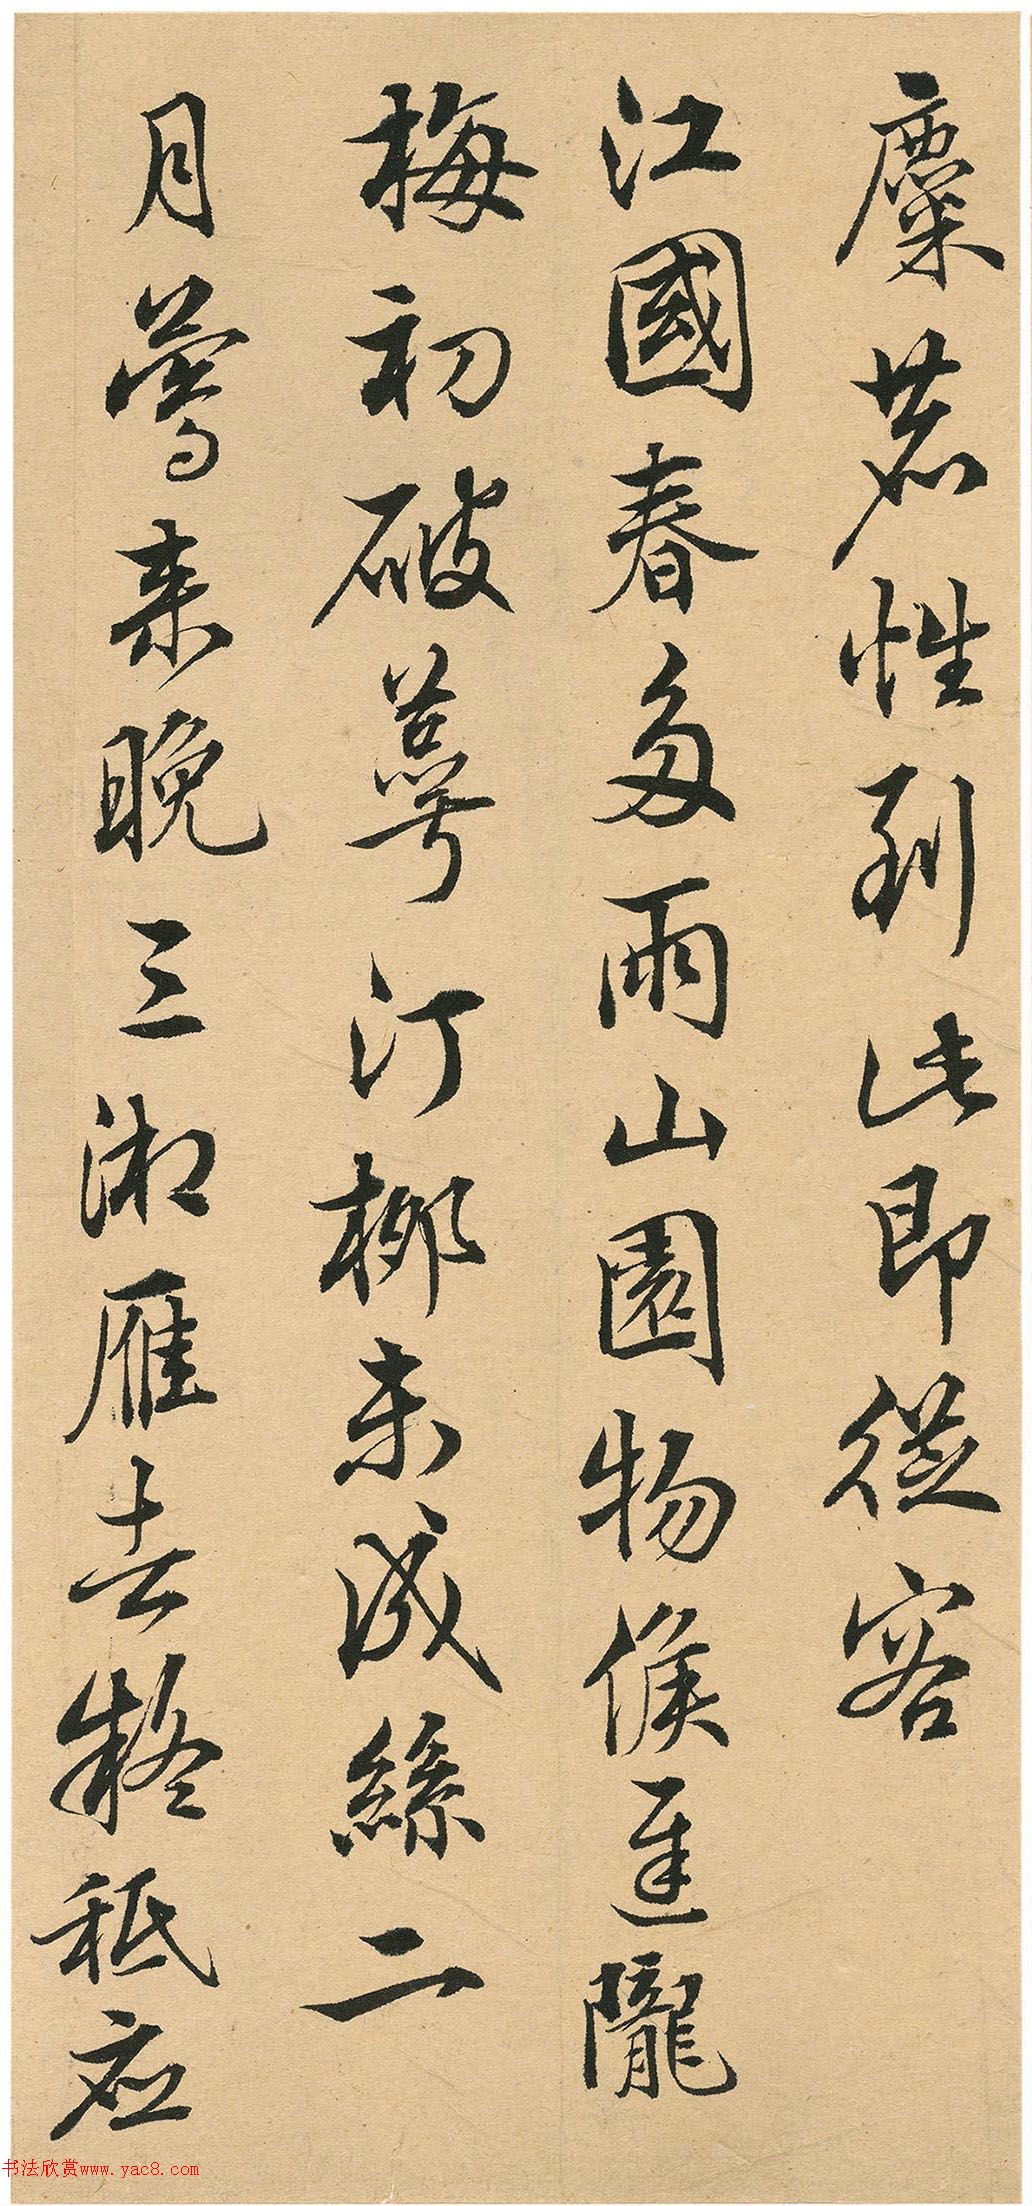 麋鹿性到此即從容
江國春多雨山園物候遲隴
梅初破萼汀柳未成絲二
月鶯來晚三湘雁去疑秖應
书法欣赏www.yac8.com